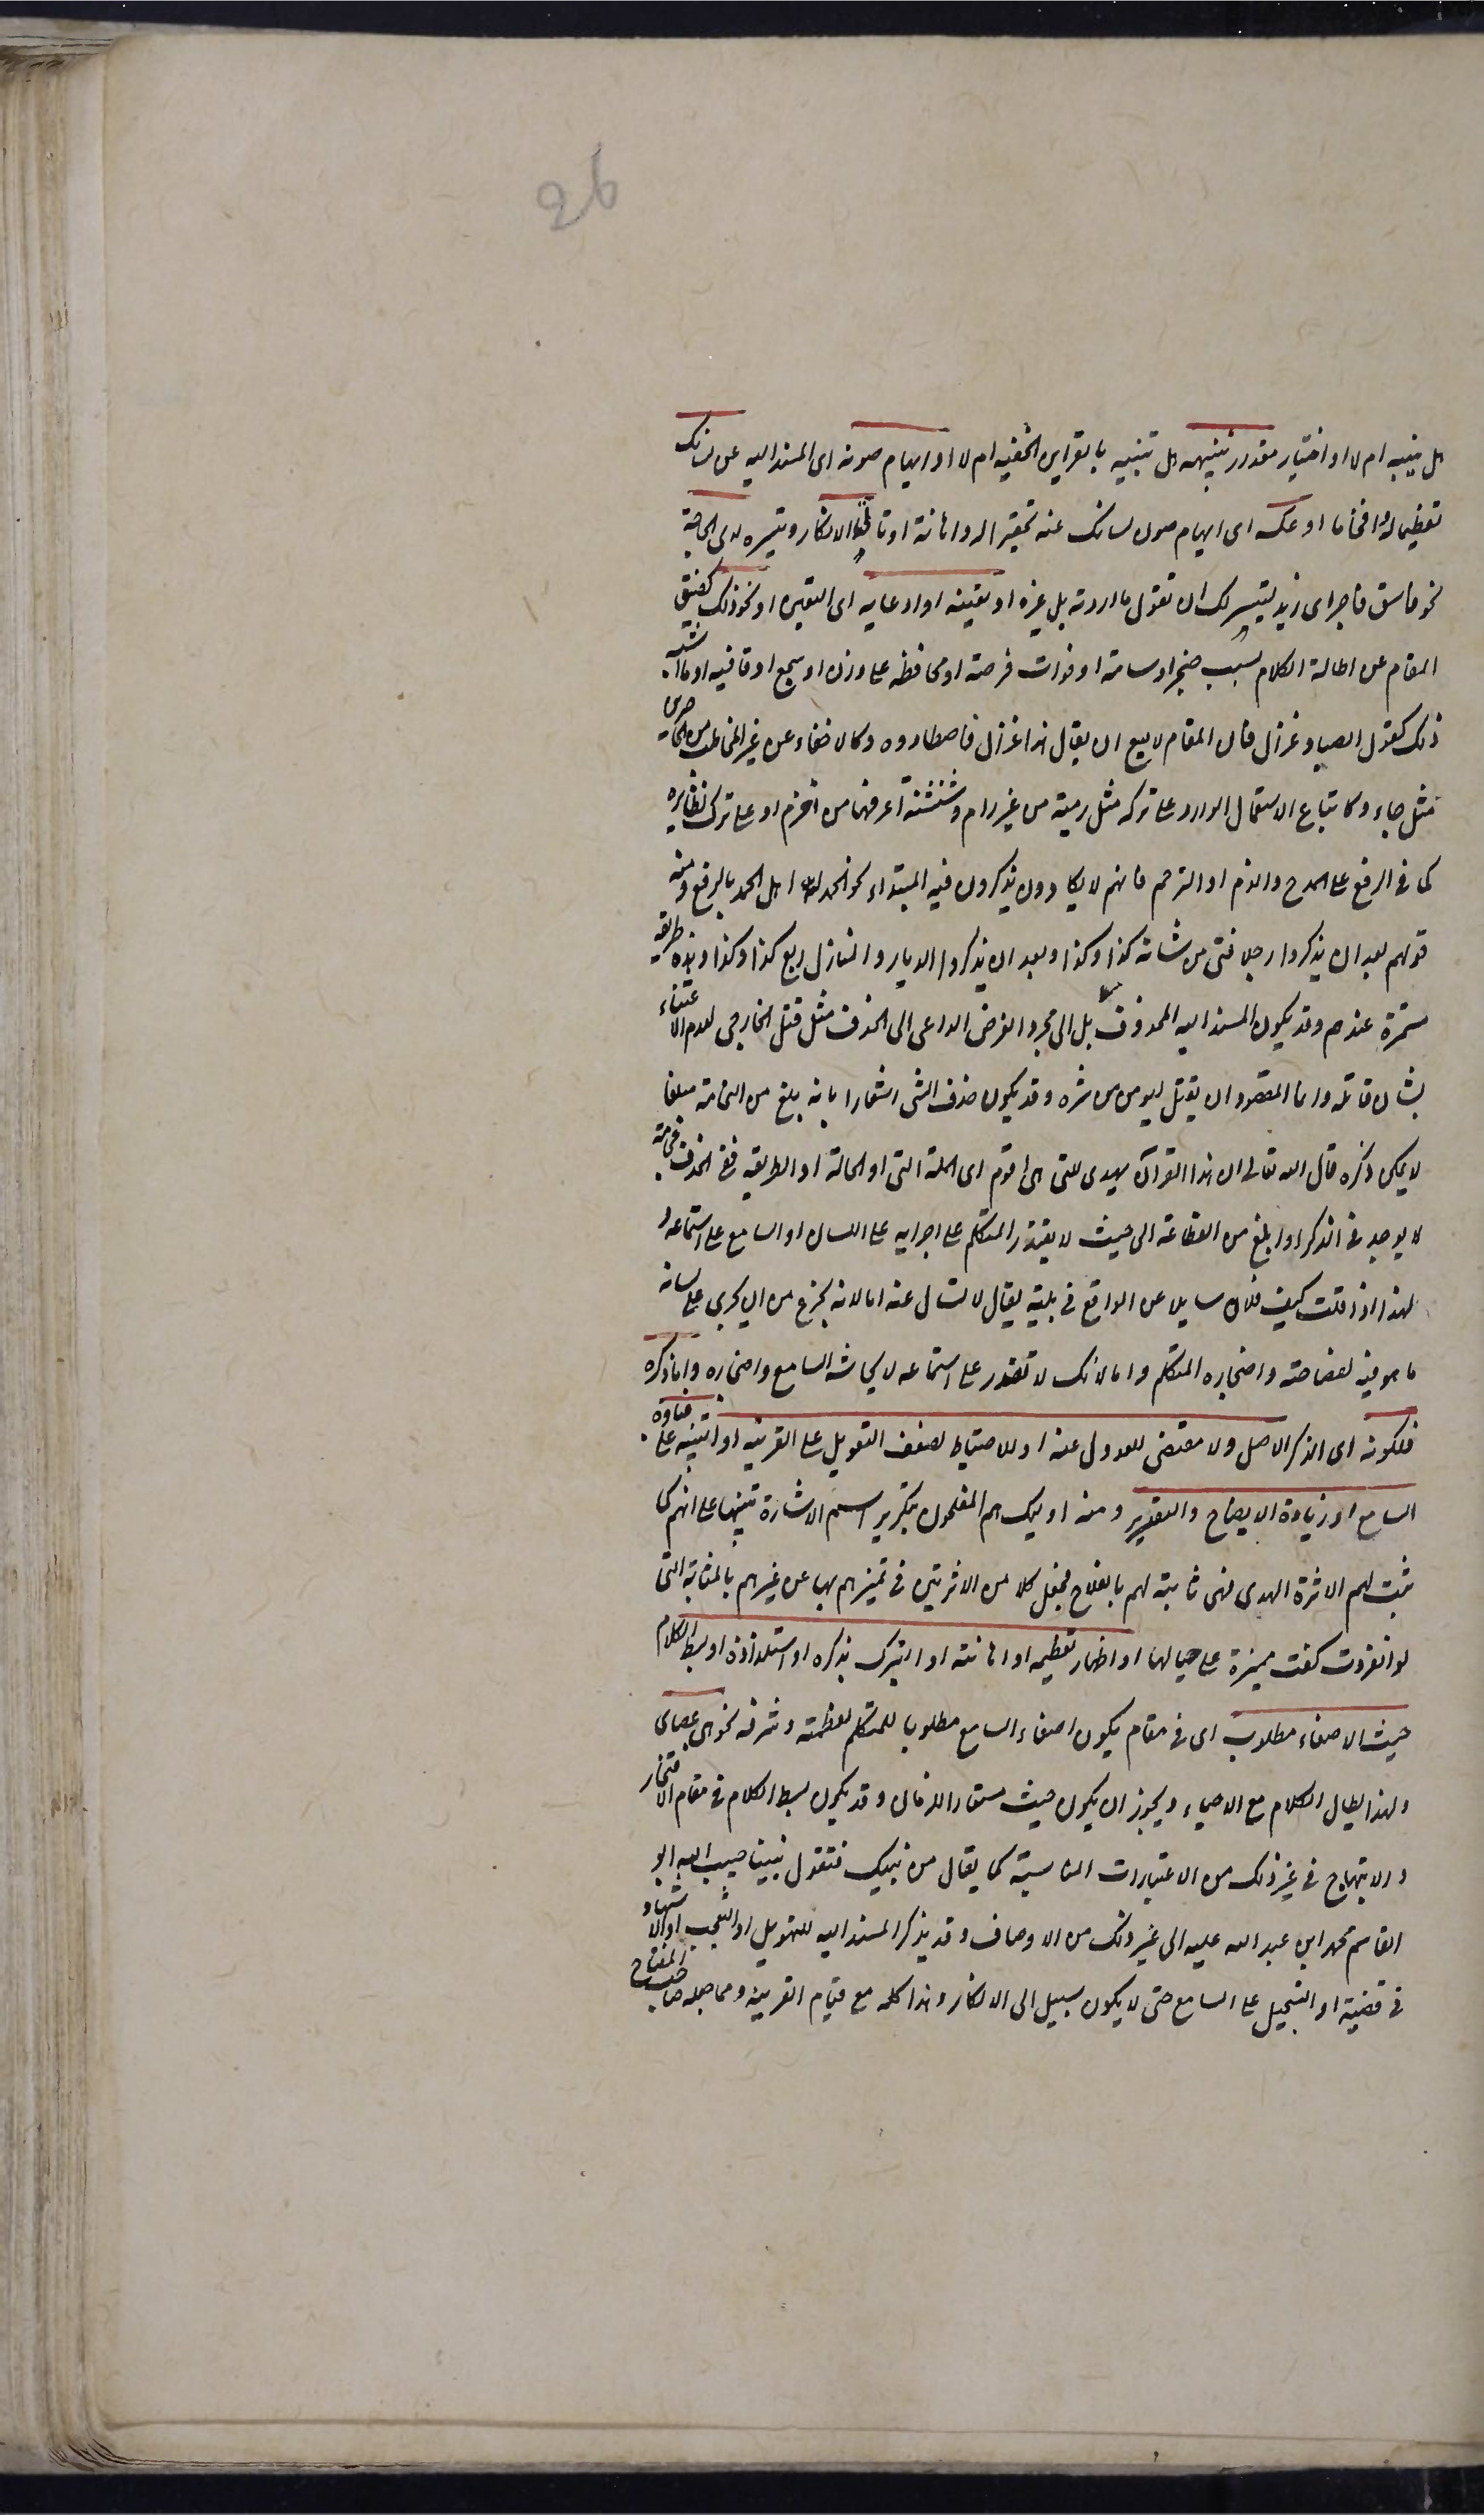 26
هل ینبه ام لا او اختبار مقدار تنبهه هل تنبیه بالقراین الخفیه ام لا او ایهام صونه ای المسند الیه عن لسانک
تعظیما له وافخاما او عکسه ای ایهام صون لسانک عنه تحقیرا له واهانة او تاتی الانکار وتیسره لدی الحاجة
نحو فاسق فاجر ای زید لیتیسر لک ان تقول ما اردته بل غیره او تعینه او ادعایه ای التعین او نحو ذلک کضیق
المقام عن اطالة الکلام بسبب ضجر او سامة او فوات فرصة او محافظه علی وزن او سجع او قافیه او ما اشبه
ذلک کقول الصیاد غزال فان المقام لا یسع ان یقال هذا غزال فاصطادوه وکالاخفاء عن غیر المخاطب من الحاضرین
مثل جاء وکاتباع الاستعمال الوارد علی ترکه مثل رمیة من غیر رام وشنشنة اعرفها من اخزم او علی ترک نظایره
کما فی الرفع علی المدح والذم او الترحم فانهم لا یکادون یذکرون فیه المبتداء نحو الحمد لله اهل الحمد بالرفع ومنه
قولهم بعد ان یذکروا رجلا فتی من شانه کذا وکذا وبعد ان یذکروا الدیار والمنازل ربع کذا وکذا وهذه طریقه
مستمرة عندهم وقد یکون المسند الیه المحذوف بل الی مجرد الغرض الداعی الی الحذف مثل قتل الخارجی لعدم الاعتناء
بشان قاتله وانما المقصود ان یقتل لیومن من شره وقد یکون حذف الشی اشعارا بانه بلغ من الفخامة مبلغا
لا یمکن ذکره قال الله تعالی ان هذا القرآن یهدی للتی هی اقوم ای الملة التی او الحالة او الطریقه ففی الحذف فخامة
لا یوجد فی الذکر او ابلغ من الفظاعة الی حیث لا یقتدر المتکلم علی اجرایه علی اللسان او السامع علی استماعه و
لهذا اذا قلت کیف فلان سایلا عن الواقع فی بلیة یقال لا تسال عنه اما لانه یجزع من ان یجری علی لسانه
ما هو فیه لفضاعته واضجاره المتکلم واما لانک لا تقدر علی استماعه لایحاشه السامع واضجاره واما ذکره
فلکونه ای الذکر الاصل ولا مقتضی للعدول عنه او للاحتیاط لضعف التعویل علی القرینه او التنبیه علی غباوة
السامع او زیادة الایضاح والتقریر ومنه اولیک هم المفلحون بتکریر اسم الاشارة تنبیها علی انهم کما
ثبت لهم الاثرة الهدی فهی ثابتة لهم بالفلاح فجعل کلا من الاثرتین فی تمیزهم بها عن غیرهم بالمثابة التی
لو انفردت کفت ممیزة علی حیالها او اظهار تعظیمه او اهانته او التبرک بذکره او استلذاذه او بسط الکلام
حیث الاصغاء مطلوب ای فی مقام یکون اصغاء السامع مطلوبا للمتکلم لعظمته وشرفه نحو هی عصای
ولهذا یطال الکلام مع الاحباء ویجوز ان یکون حیث مستعارا للزمان وقد یکون بسط الکلام فی مقام الافتخار
والابتهاج فی غیر ذلک من الاعتبارات المناسبة کما یقال من نبیک فتقول نبینا حبیب الله ابو
القاسم محمد ابن عبد الله علیه الی غیر ذلک من الاوصاف وقد یذکر المسند الیه للتهویل او التعجب او الاشهاد
فی قضیة او التسجیل علی السامع حتی لا یکون سبیل الی الانکار وهذا کله مع قیام القرینه ومما جعله صاحب المفتاح